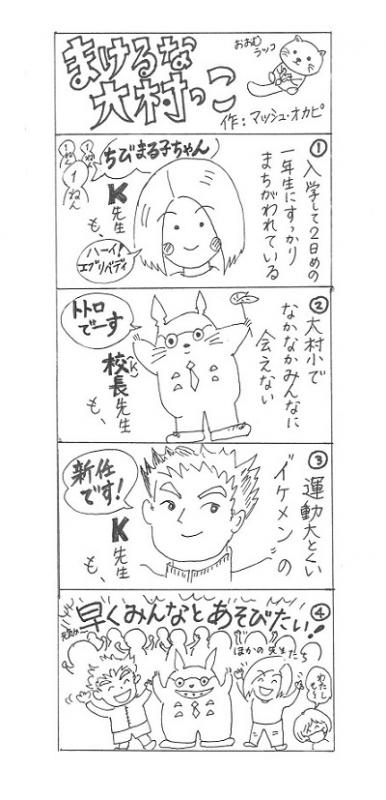 まけるな
大村っこ
おおむ
ラッコ
作：マッシュ・オカピ
①入学して2日めの
一年生にすっかり
まちがわれている
ちびまる子ちゃん
1ねん
K先生
も、
ハーイ！
エブリバディ
②大村小で
なかなかみんなに
会えない
トトロ
でーす
校長(K)先生
も、
③運動大とくい
イケメンの
新任
です！
K先生
も、
④
早くみんなとあそびたい！
ほかの先生たち
わたし
も〜